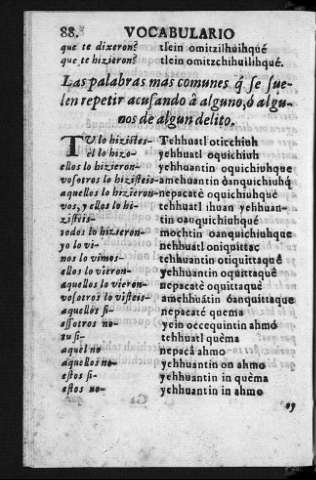 88. VOCABULARIO
que te dixeron? tlein omitzilhuihqué
que te hizieron? tlein omitzchihuilihqué.
Las palabras mas comunes q̃ se sue-
len repetir acusando â alguno, ó algu-
nos de algun delito.
TV lo hizistes- Tehhuatl oticchiuh
él lo hizo- yehhuatl oquichiuh
ellos lo hizieron- yehhuantin oquichiuhque
vosotros lo hizisteis- amehhuantin óanquichiuhq̃
aquellos lo hizieron- nepacatè oquichiuhqué
vos, y ellos lo hi- tehhuatl ihuan yehhuan-
zisteis- tin oauquichiuhqué
todos lo hizieron- mochtin oanquichiuhque
yo lo vi- nehhuatl oniquittac
nos lo vimos- tehhuantin otiquittaquê
ellos lo vieron- yehhuantin oquittaquê
aquellos lo vieron- nepacatè oquittaquè
vosotros lo visteis- amehhuátin óanquittaque
aquellos si- nepacaté quema
essotros no- yein occequintin ahmó
tu si- tehhuatl quèma
aquel no nepacâ ahmo
aquellos no- yehhuantin on ahmo
estos si- yehhuantin in quèma
estos no- yehhuantin in ahmo